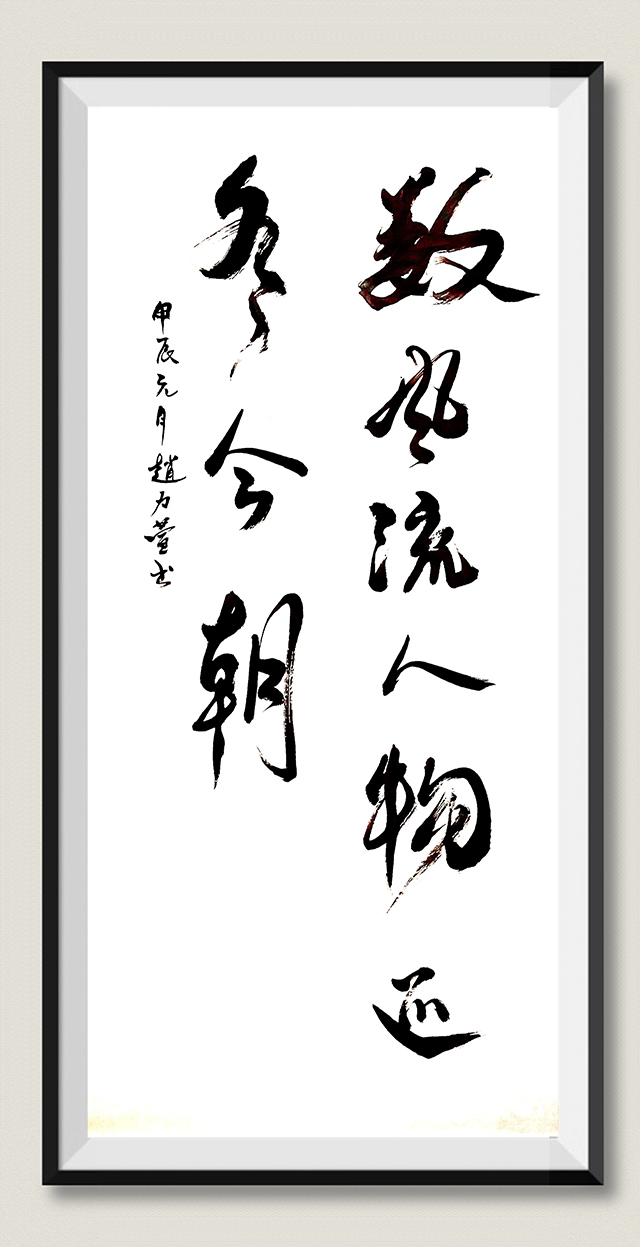 数风流人物还
看今朝
甲辰元月趙力萱书